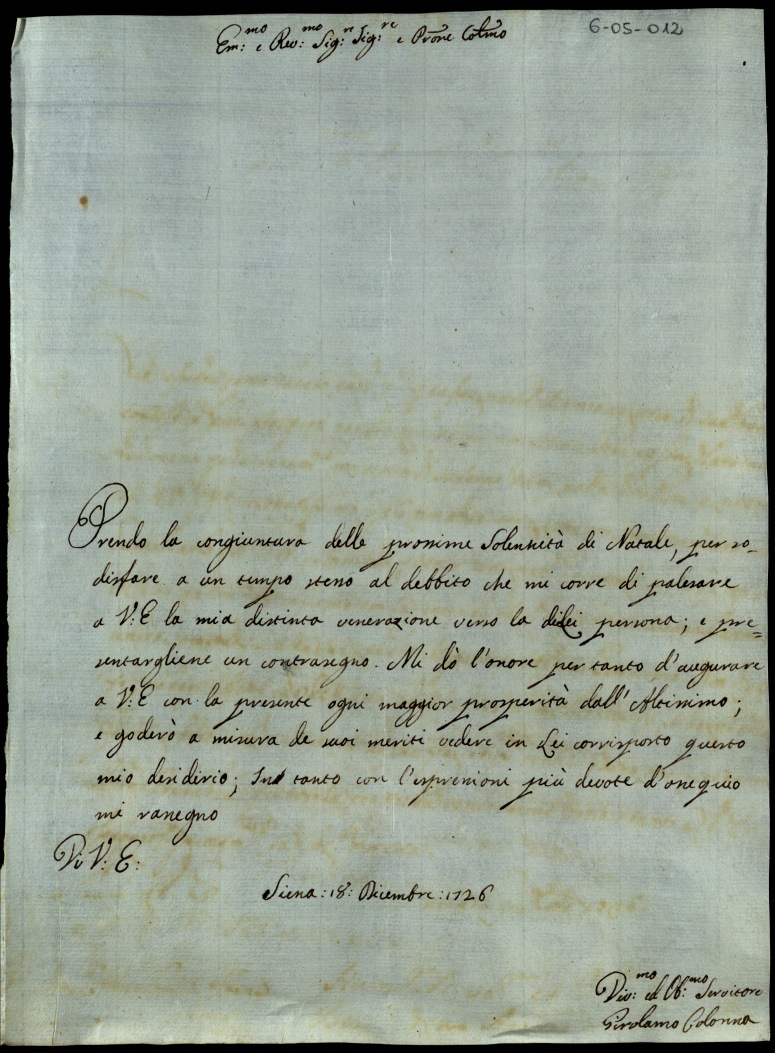 6-05-012
Em:mo e Rev:mo Sig:r Sig:re e Prōne Colmō
Prendo la congiuntura delle prossime Solennità di Natale, per so-
disfare a un tempo stesso al debbito che mi corre di palesare
a V:E la mia distinta venerazione verso la dilei persona; e pre=
sentargliene un contrasegno. Mi dò l'onore per tanto d'augurare
a V:E con la presente ogni maggior prosperità dall'Altissimo;
e goderò a misura de suoi meriti vedere in Lei corrisposto questo
mio desiderio; In tanto con l'espressioni più devote d'ossequio
mi rassegno
Di V: E:
Siena: 18: Dicembre: 1726
Div:mo ed Ob:mo Servitore
Girolamo Colonna